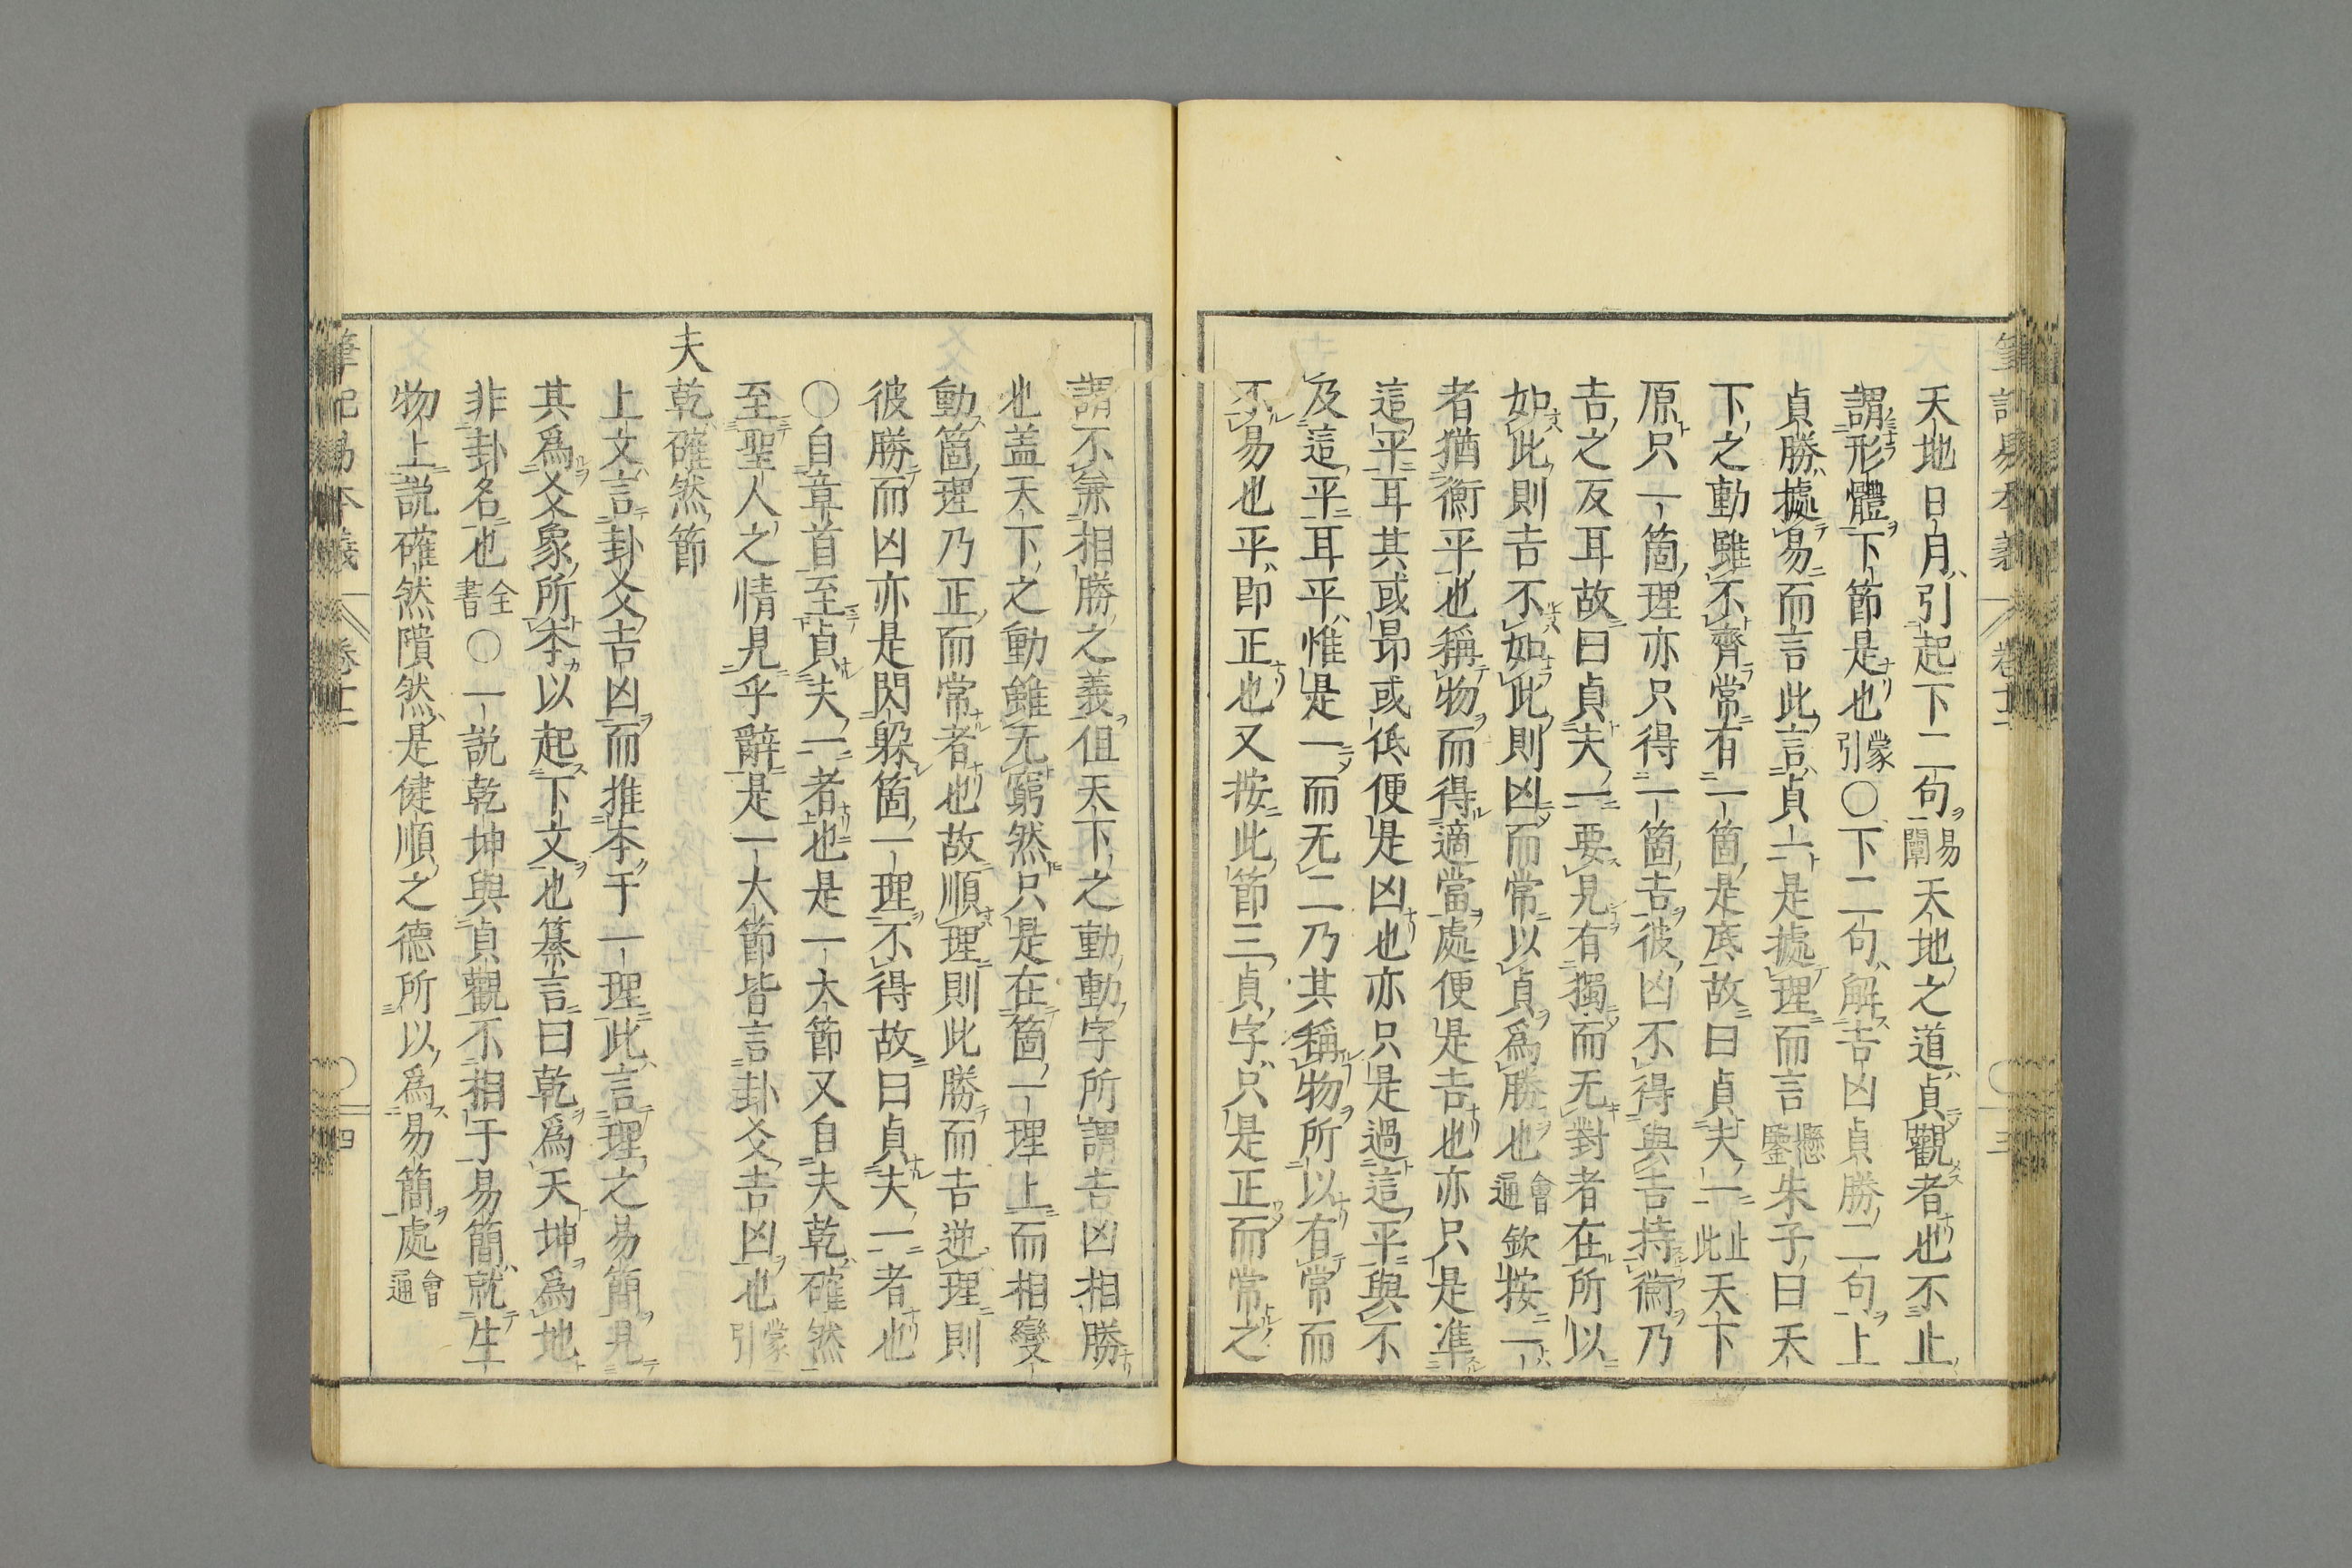 天地日月引起下二句易闡天地之道貞觀者也不止
謂形體下節是也蒙引〇下二句解吉凶貞勝二句上
貞勝據易而言此言貞一是據理而言懸鑒朱子曰天
下之動雖不齊常有一箇是底故曰貞夫一止此天下
原只一箇理亦只得一箇吉彼凶不得與吉持衡乃
吉之反耳故曰貞夫一要見有獨而无對者在所以
如此則吉不如此則凶而常以貞爲勝也會通欽按一
者猶衡平也稱物而得適當處便是吉也亦只是準
這平耳其或昻或低便是凶也亦只是過這平與不
及這平耳平惟是一而无二乃其稱物所以有常而
不易也平即正也又按此節三貞字只是正而常之
謂不兼相勝之義伹天下之動動字所謂吉凶相勝
也盖天下之動雖无窮然只是在箇一理上而相變
動箇理乃正而常者也故順理則此勝而吉逆理則
彼勝而凶亦是閃躱箇一理不得故曰貞夫一者也
〇自章首至貞夫一者也是一大節又自夫乾確然
至聖人之情見乎辭是一大節皆言卦爻吉凶也蒙引
夫乾確然節
上文言卦爻吉凶而推本于一理此言理之易簡見
其爲爻象所本以起下文也纂言曰乾爲天坤爲地
非卦名也全書〇一説乾坤與貞觀不相于易簡就生
物上説確然隤然是健順之德所以爲易簡處會通
筆記易本義
卷十二
三
四